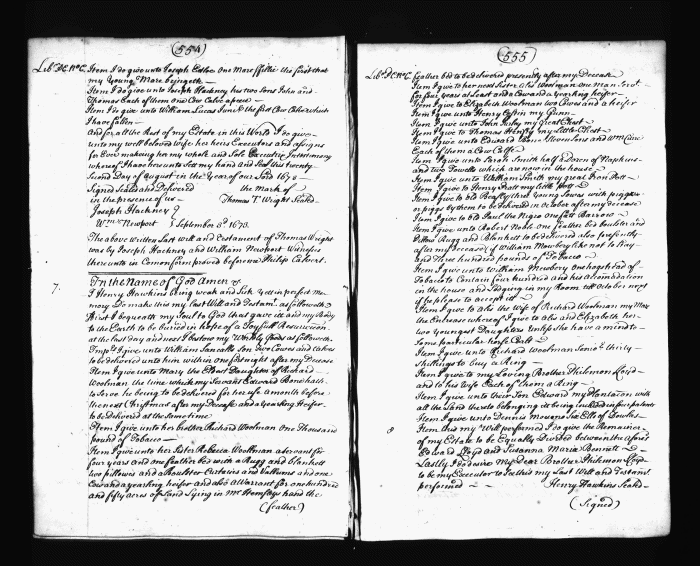 (554)
Lib. DC. No. C. Item I do give unto Joseph Callve one Mare ffillie the first that
my young Mare bringeth
Item I do give unto Joseph Hackney his two Sons John and
Thomas Each of them one Cow Calve apeice
Item I do give unto William Lucas Junr. the first Cow Calve which
I have fallen
And for all the Rest of my Estate in this World I do give
unto my well beloved wife her heirs Executors and assigns
for Ever making her my whole and Sole Executrix In testimony
whereof I have hereunto Set my hand and Seal this twenty
Second Day of August in the Year of our Lord 1673
Signed Sealed and Delivered the Mark of
in the presence of us Thomas T Wright Seald
Joseph Hackney
Wm. Newport September 8d. 1673.
The above written Last will and Testament of Thomas Wright
was by Joseph Hackney and William Newport Witnesses
thereunto in Common form proved before me Philip Calvert.
7. In the Name of God Amen
I Henry Hawkins being weak and Sick yet in perfect Me-
mory Do make this my last Will and Testamt. as followeth
first I bequeath my Soul to God that gave it and my Body
to the Earth to be buried in hope of a Joyfull Resurrection
at the last day and next I bestow my Worldly Goods as followeth
Impr. I give unto William two Cowes and Calves
to be delivered unto him within one fortnight after my Decease
Item I give unto Mary the Eldest Daughter of Richard
Woolman the time which my Servant Edward
to Serve he being to be delivered for her use a month before
the next Christmas after my Decease and a yearling Heifer
to be delivered at the Same time
Item I give unto her brother Richard Woolman One Thousand
pound of Tobacco
Item I give unto her Sister Rebecca Woolman a Servant for
four years and one feather bed with a Rugg and blankett
two pillows and a boulster Curtains and Vallians and one
Cow and a yearling heifer and also a Warrant for one hundred
and fifty acres of Land Lying in Mr. Hemsleys hand the
(feather)
(555)
Lib. DC. No. C. feather bed to be delivered presently after my Decease
Item I give to her next Sister Alis Woolman one Man Servt.
for four years at Least and a Cow and a yearling heifer
Item I give to Elizabeth Woolman two Cows and a heifer
Item I give unto Henry my Gunn
Item I give unto John my Great Chest
Item I give to Thomas Henfry my Little Chest
Item I give unto Edward Stevensons and Wm.
Each of them a Cow Calfe
Item I give unto Sarah Smith half a dozen of Napkins
and two Towells which are now in the house
Item I give unto William Smith my great Iron Pott
Item I give to Henry Pratt my little Pott
Item I give to old three young Sowes with piggs
or piggs by them to be delivered in October after my decease
Item I give to old Paul the Negro one fatt Barrow
Item I give unto Robert Noble one feather bed boulster and
Pillow Rugg and Blankett to be delivered also presently
after my decease if William Mowbery like not to buy
and Three hundred pounds of Tobacco
Item I give unto William Mewbery one hogshead of
Tobacco to Contain four hundred and his accommodation
in the house and Lodging in my Room till October next
if he please to accept it
Item I give to Alis the Wife of Richard Woolman my Mare
the Encrease whereof I give to Alis and Elizabeth her
two youngest Daughters unless She have a mind to
Some particular horse Coult
Item I give unto Richard Woolman Senior thirty
Shillings to buy a Ring
Item I give to my Loving Brother Philemon Lloyd
and to his Wife Each of them a Ring
Item I give unto their Son Edward my Plantation with
all the Land thereto belonging it being included in four patents
Item I give unto Dennis
Item this my Will performed I do give the Remainder
of my Estate to be Equally Divided between the aforesd
Edward Lloyd and Susanna Maria Bennett
Lastly I do desire My Dear Brother Philemon Lloyd
to be my Executor to See this my Last Will and Testamt.
performed Henry Hawkins Seald
(Signed)